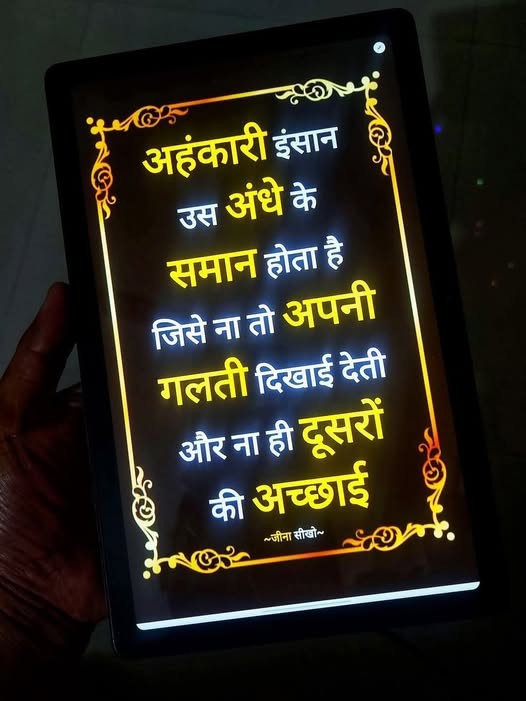 अहंकारी इंसान
उस अंधे के
समान होता है
जिसे ना तो अपनी
गलती दिखाई देती
और ना ही दूसरों
की अच्छाई
~जीना सीखो~